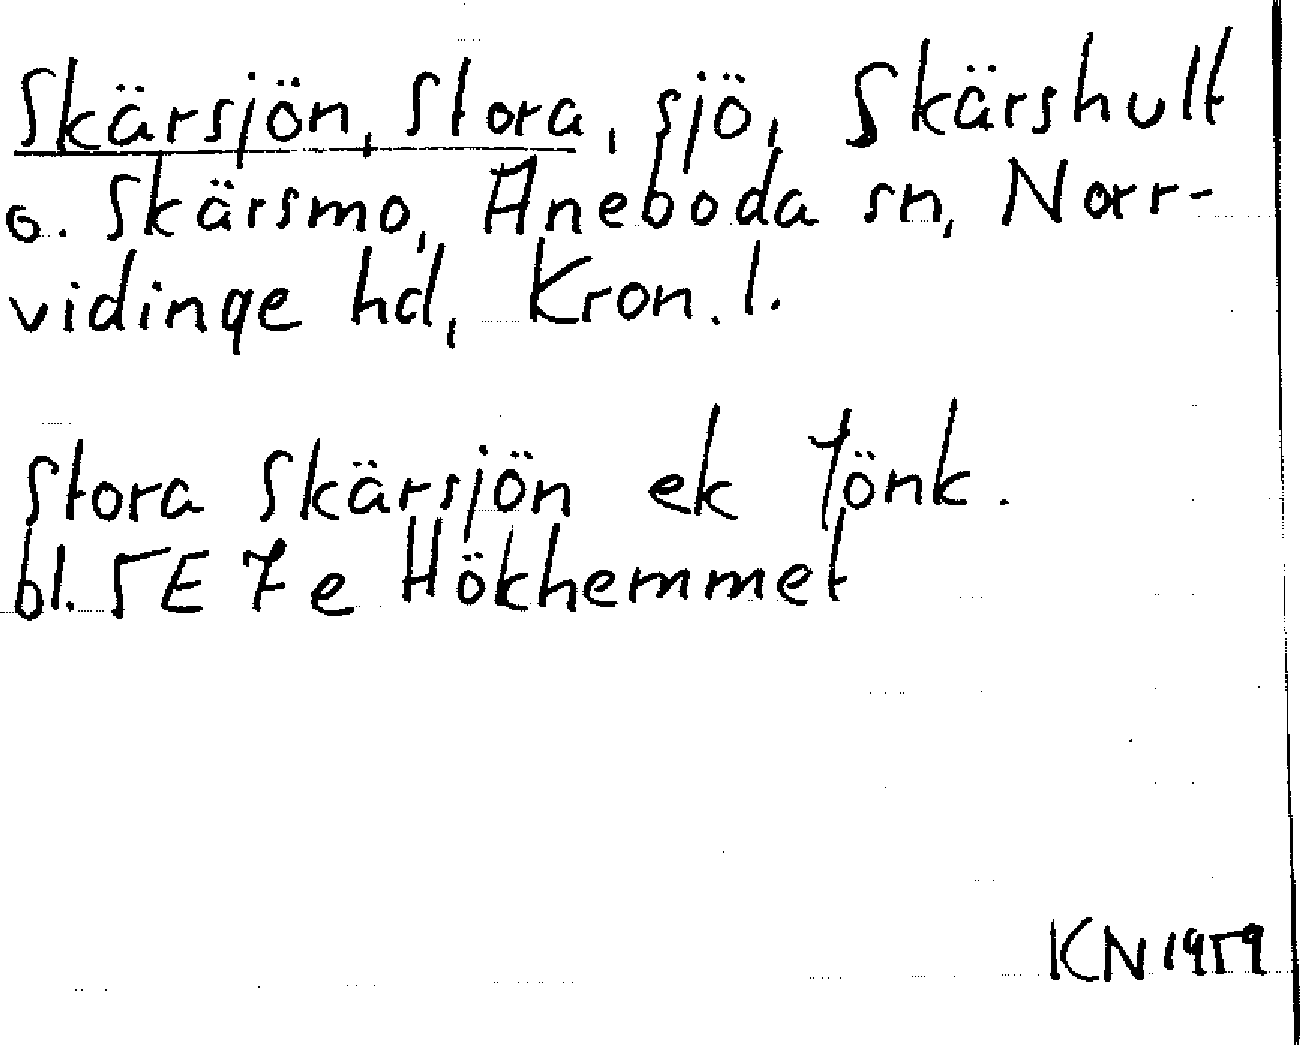 Skärsjön, Stora, sjö, Skärshult
o. Skärsmo, Aneboda sn, Norr-
vidinge hd, Kron. l.
Stora Skärsjön ek Jönk.
bl. 5E 7e Hökhemmet
KN 1959